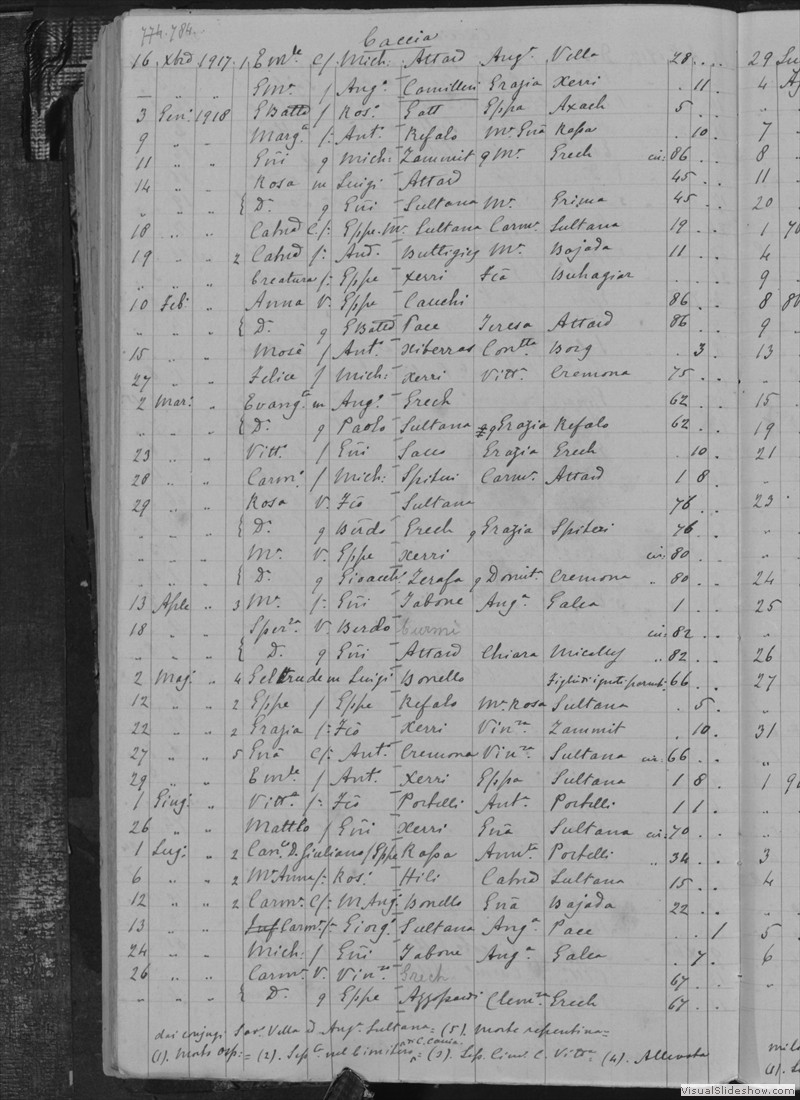 774.784.
Caccia
16 Xbrd 1917 1 Em.te C/: Mich: Attard Ang.a Vella 28 . . . 29
— „ „ Em.e / Ang.o Camilleri Grazia Xerri . 11 . 4
3 Gen: 1918 GBatta / Ros.o Gatt Eppa Axach 5 . .
9 „ „ Marg.a /: Ant.o Refalo M.a Gnã Rapa . 10 . 7
11 „ „ Gnñi g Mich: Zammit g M.a Grech cir: 86 . . 8
14 „ „ Rosa m Luigi Attard 45 . . 11
„ „ „ { D.a g Gnñi Sultana M.a Grima 45 . . 20
18 „ „ Catnd C/: Eppe-M.a Sultana Carm.a Sultana 19 . . 1
19 „ „ 2 Catnd /: And. Buttigieg M.a Bajada 11 . . 4
„ „ „ Creatura /: Eppe Xerri Fcã Buhagiar . . . 9
10 Feb: „ Anna V. Eppe Cauchi 86 . . 8
„ „ „ { D.a g GBatta Pace Teresa Attard 86 . . 9
15 „ „ Mosè / Ant.o Xiberras Con.tta Borg . 3 . 13
27 „ „ Felice / Mich: Xerri Vitt.a Cremona 75 . .
2 Mar: „ Evang.ta m Ang.o Grech 62 . . 15
„ „ „ { D.a g Paolo Sultana g Grazia Refalo 62 . . 19
23 „ „ Vitt.a / Gnñi Sacco Grazia Grech . 10 . 21
28 „ „ Carm.o / Mich: Spiteri Carm.a Attard 1 8 .
29 „ „ Rosa V. Fcõ Sultana 76 . . 23
{ D.a g Berdo Grech g Grazia Spiteri 76 . .
„ „ „ M.a V. Eppe Xerri cir: 80 . . „
„ „ „ { D.a g Gioacch.o Zerafa g Domit.a Cremona „ 80 . . 24
13 Aple „ 3 M.a /: Gnñi Tabone Ang.a Galea 1 . . 25
18 „ „ Sper.za V. Berdo Curmi cir: 82 . . „
„ „ „ { D.a g Gnñi Attard Chiara Micallef „ 82 . . 26
2 Mag: „ 4 Geltrude m Luigi Bonello Figlia di ignoti parenti 66 . . 27
12 „ „ 2 Eppe / Eppe Refalo M.a Rosa Sultana . 5 .
22 „ „ 2 Grazia /: Fcõ Xerri Vin.za Zammit . 10 . 31
27 „ „ 5 Gnã C/: Ant.o Cremona Vin.za Sultana cir: 66 . . „
29 „ „ Em.le / Ant.o Xerri Eppa Sultana 1 8 . 1
1 Giug: „ Vitt.a /: Fcõ Portelli Ant.a Portelli 1 1 . „
26 „ „ Matteo / Gnñi Xerri Gnã Sultana cir: 70 . . „
1 Lug: „ 2 Can.o D. Giuliano / Eppe Rapa Ann.ta Portelli „ 34 . . 3
6 „ „ 2 M.a Anna /: Ros.o Hili Catnd Sultana 15 . . 4
12 „ „ 2 Carm.a C/: M.Ang.o Bonello Gnã Bajada 22 . . „
13 „ „ Carm.a /: Giorg.o Sultana Ang.a Pace . . 1 5
24 „ „ Mich: / Gnñi Tabone Ang.a Galea . 7 . 6
26 „ „ Carm.a V. Vin.zo Grech 67 . . „
„ „ „ { D.a g Eppe Azzopardi Clem.za Grech 67 . . „
dai conjugi Sav. Vella ed Ang.a Sultana = (5). morte repentina =
(1). Morto osp: = (2). Sep.to nel Cimitero n. C. Caccia = (3). Sep. Cimit. C. Vitt.a (4). Allevata